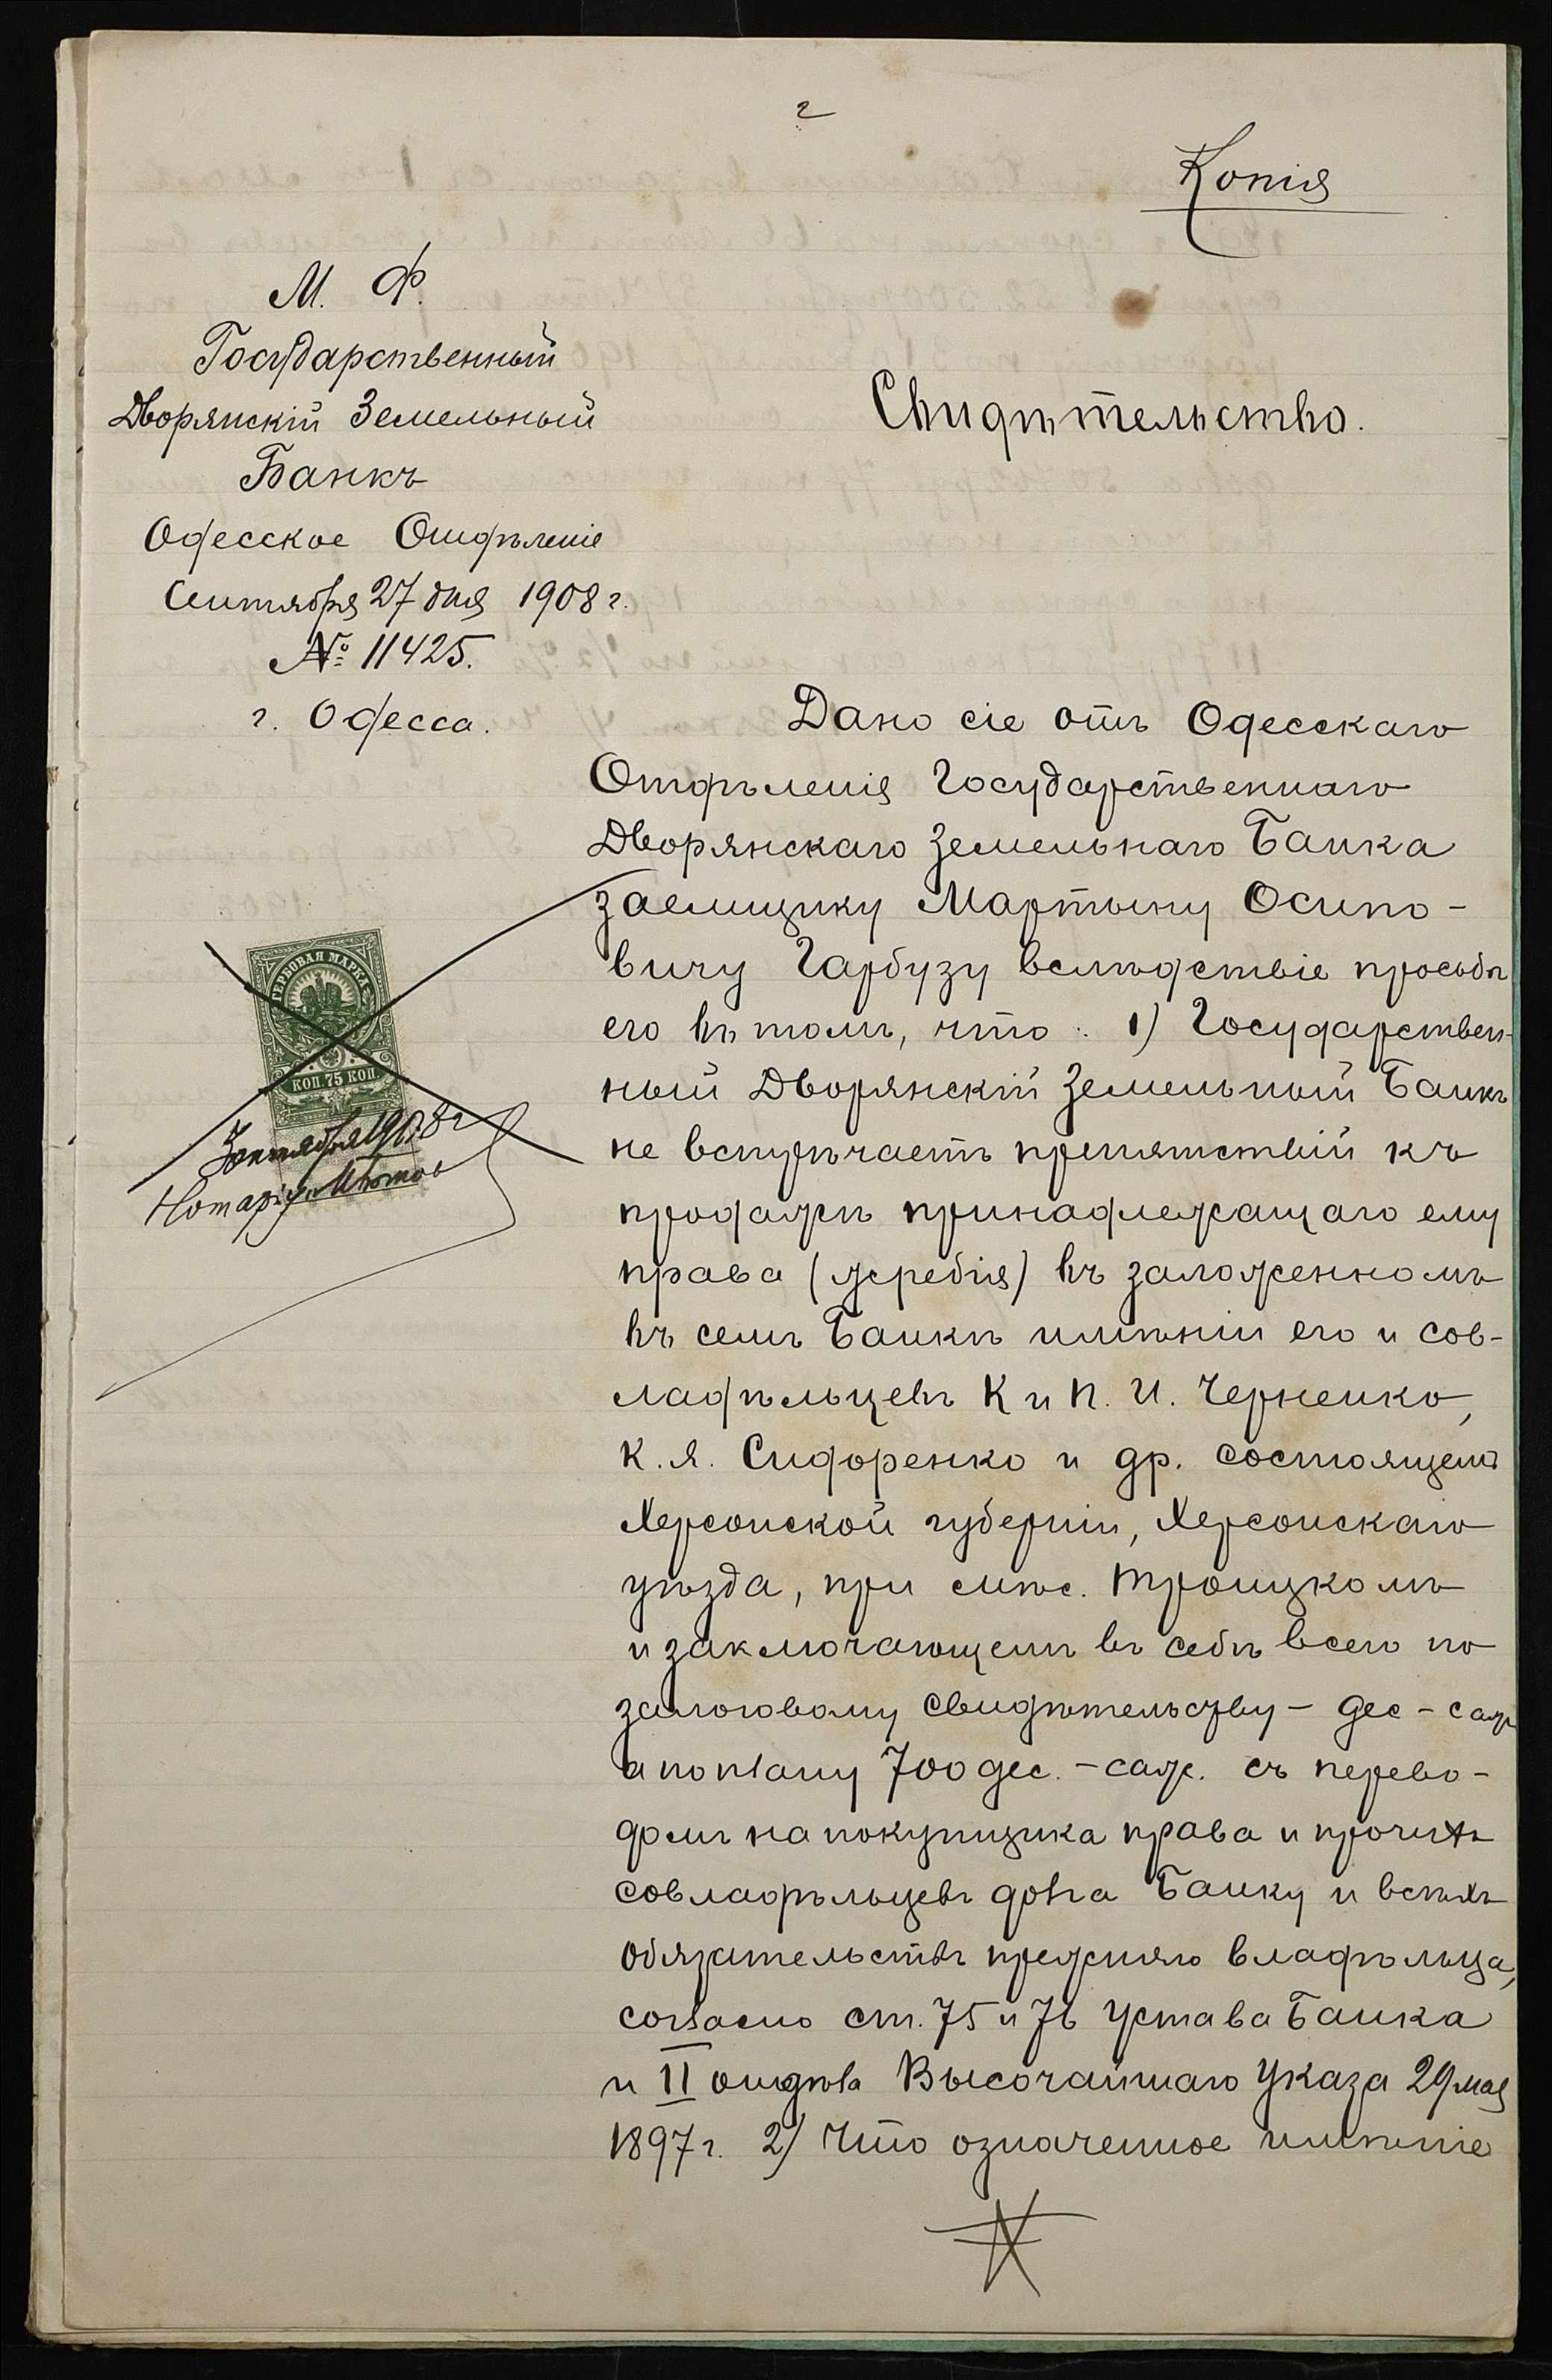 2
Копія
М. Ф.
Государственный
Дворянскій Земельный
Банкъ
Одесское Отдѣленіе
Сентября 27 дня 1908 г.
№ 11425.
г. Одесса.
Свидѣтельство.
Дано сіе отъ Одесскаго
Отдѣленія Государственнаго
Дворянскаго Земельнаго Банка
заемщику Мартыну Осипо-
вичу Гарбузу вслѣдствіе просьбы
его въ томъ, что: 1) Государствен-
ный Дворянскій Земельный Банкъ
не встрѣчаетъ препятствій къ
продажѣ принадлежащаго ему
права (жребія) въ заложенномъ
въ семъ Банкѣ имѣніи его и сов-
ладѣльцевъ К и П. И. Черненко,
К. Я. Сидоренко и др. состоящемъ
Херсонской губерніи, Херсонскаго
уѣзда, при мѣс. Троицкомъ
и заключающемъ въ себѣ всего по
залоговому свидѣтельству - дес - саж
а по плану 700 дес. - саж. съ перево-
домъ на покупщика права и прочихъ
совладѣльцевъ долга Банку и всѣхъ
обязательствъ прежняго владѣльца,
согласно ст. 75 и 76 Устава Банка
и II отдѣла Высочайшаго Указа 29 мая
1897 г. 2) Что означенное имѣніе
ГЕРБОВАЯ МАРКА
КОП 75 КОП
октября 1908 г
Нотаріусъ